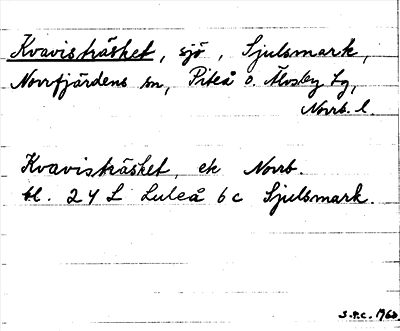 Kvavisträsket, sjö, Sjulsmark,
Norrfjärdens sn, Piteå o. Älvsby tg,
Norrb. l.
Kvavisträsket, ek Norrb.
bl. 24 L Luleå 6 c Sjulsmark.
S.P.C. 1960.